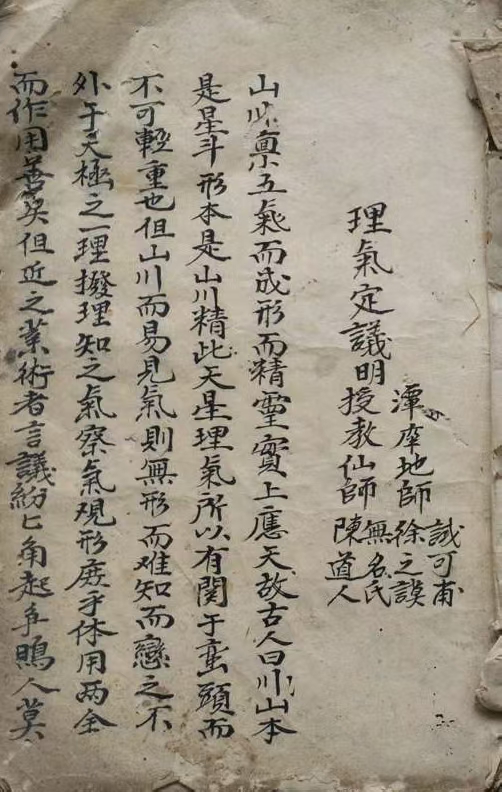 誠可甫
潭庠地師徐之謨
無名氏
理氣定議明授教仙師陳道人
山川禀五氣而成形而精靈實上應天故古人曰川山本
是星斗形本是山川精此天星理氣所以有関于巒頭而
不可輕重也但山川而易見氣則無形而难知而巒之不
外于天極之一理撥理知之氣察氣观形庶乎体用两全
而作用善矣但近之業術者言議紛匕角起争鳴人莫